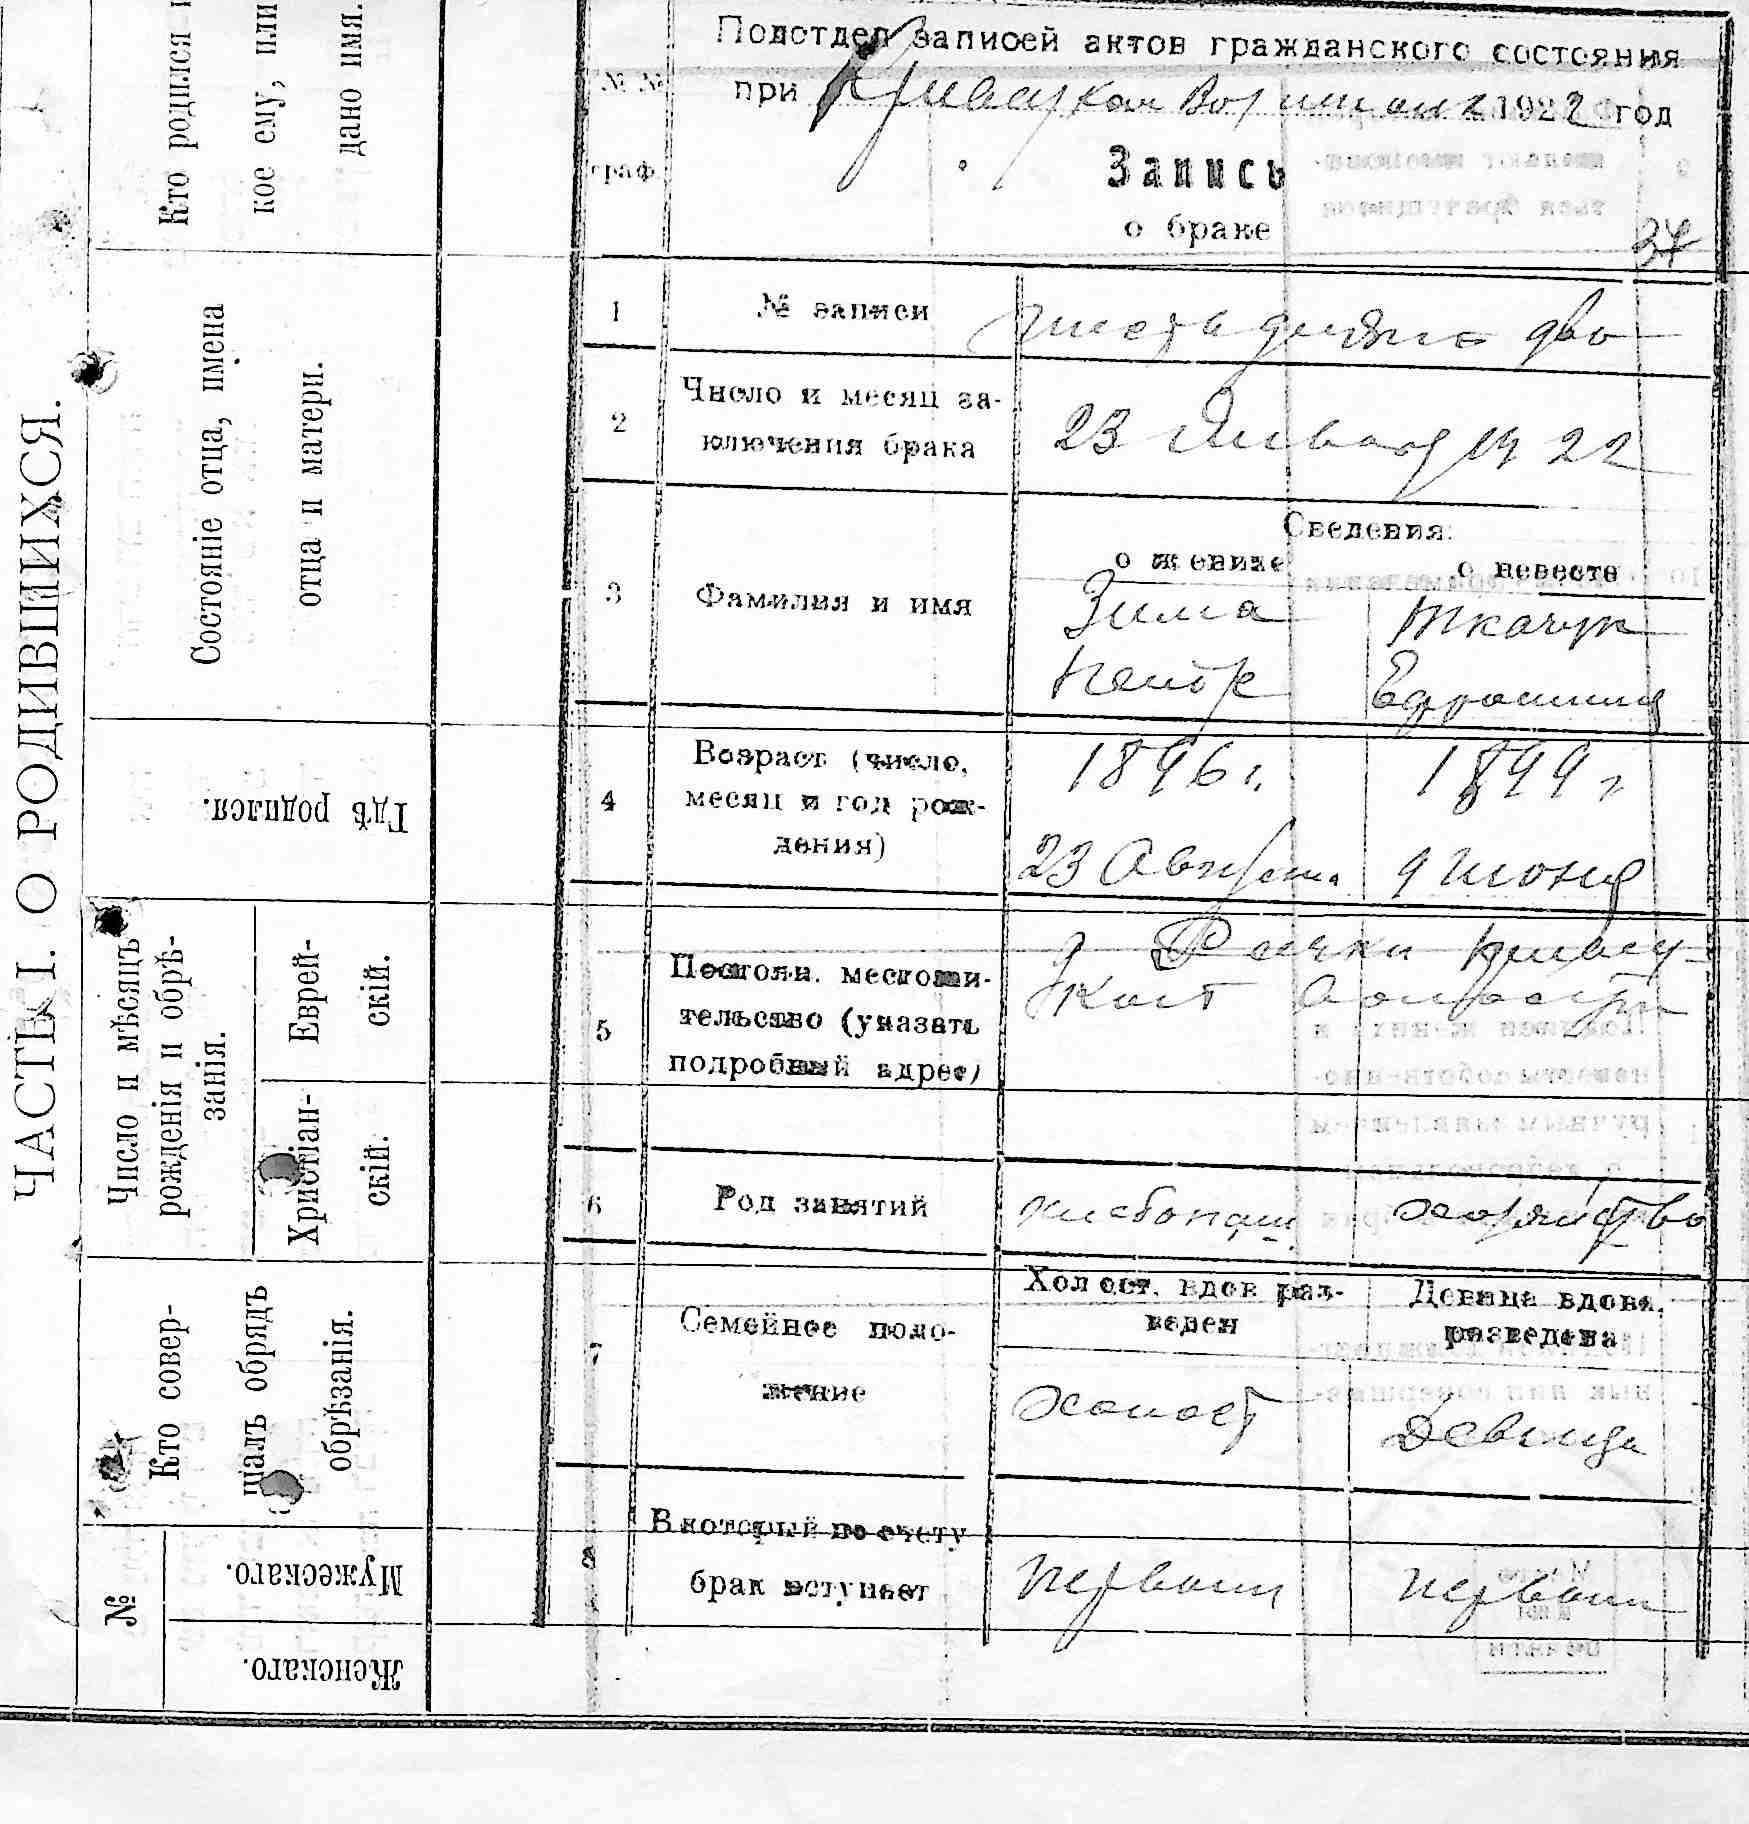 ЧАСТЬ I. О РОДИВШИХСЯ.
Кто родился и
кое ему, или
дано имя.
Состояніе отца, имена
отца и матери.
Гдѣ родился.
Число и мѣсяцъ
рожденія и обрѣ-
занія.
Еврей-
скій.
Христіан-
скій.
Кто совер-
шалъ обрядъ
обрѣзанія.
№
Мужескаго.
Женскаго.
№ №
граф.
Подотдел записей актов гражданского состояния
при 1922 год
Запись
о браке
34
1
№ записи
шестьдесят два
2
Число и месяц за-
ключения брака
23 Января 1922
Сведения:
о женихе
о невесте
3
Фамилия и имя
Зима
Ткачук
Петр
Ефросиния
4
Возраст (число,
месяц и год рож-
дения)
1896 г.
1899 г
23 Августа
9 Июня
5
Постоян. местожи-
тельство (указать
подробный адрес)
6
Род занятий
хлебопаш.
хозяйство
7
Семейное поло-
жение
Холост. вдов раз-
веден
Девица вдова,
разведена
холост
Девица
8
В который по счету
брак вступает
первый
первый